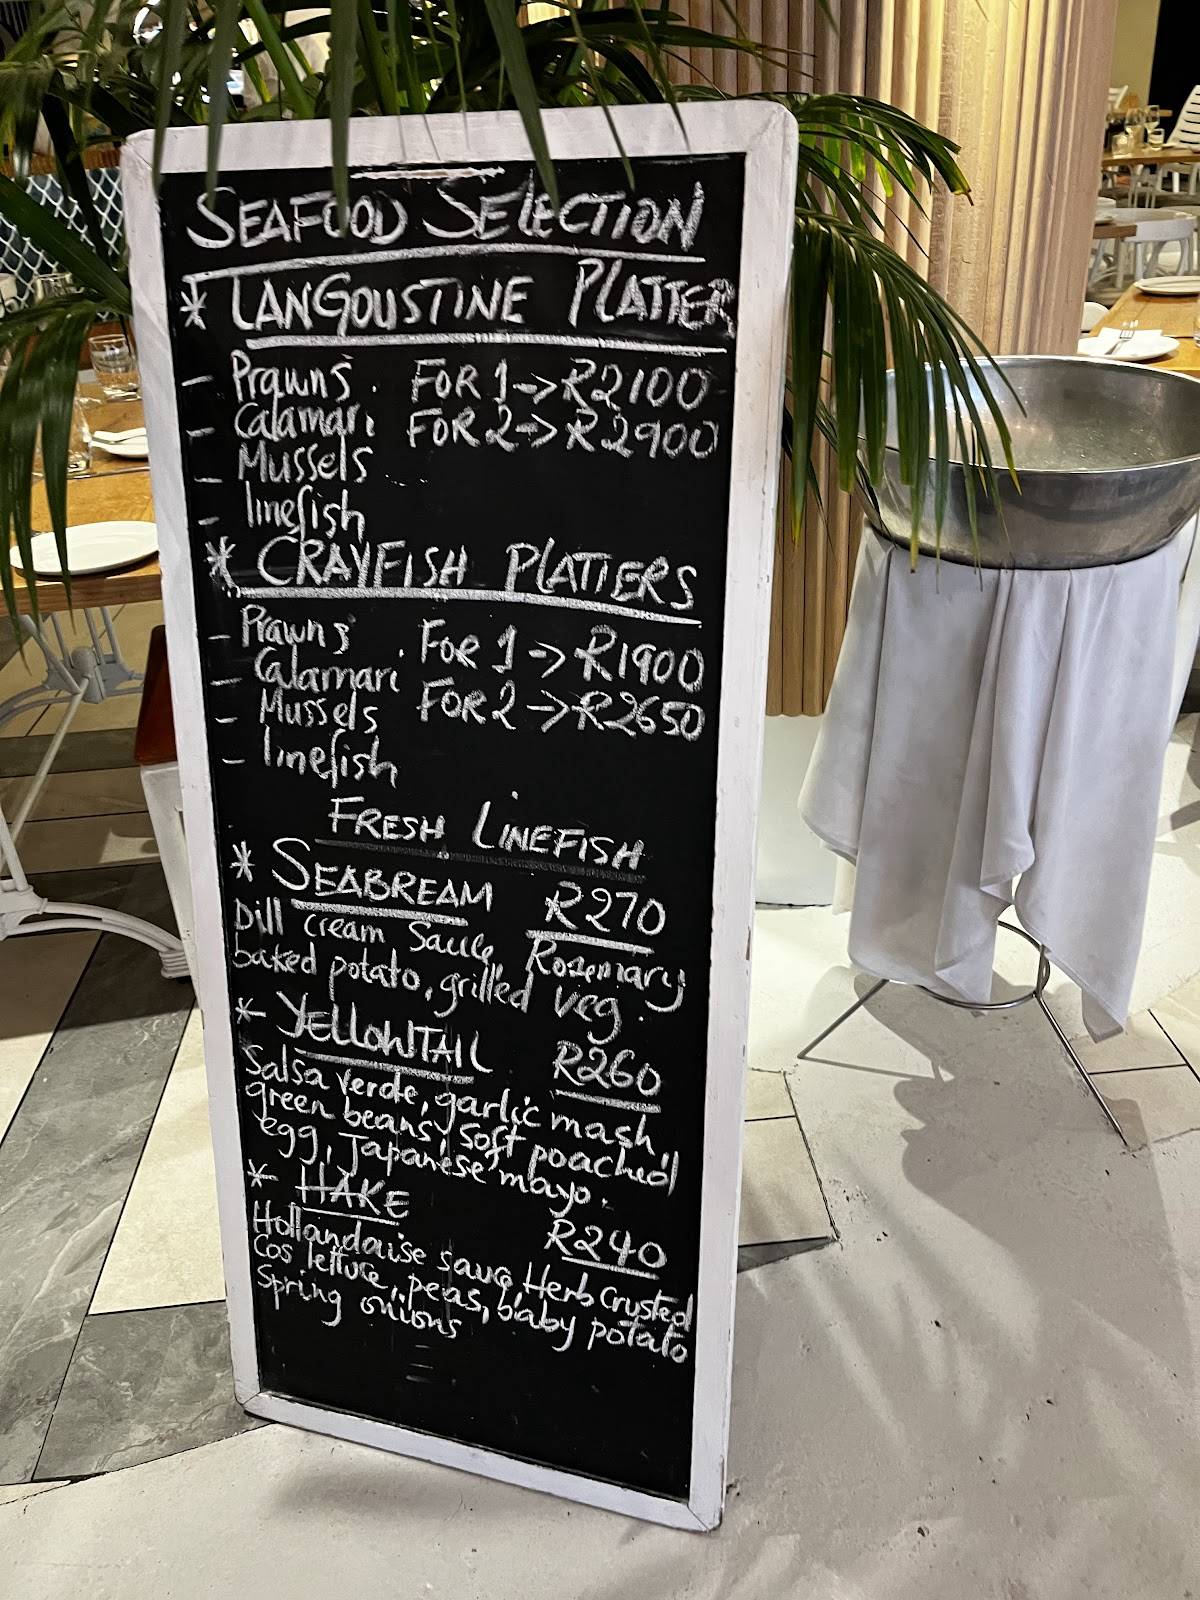 SEAFOOD SELECTION
* LANGOUSTINE PLATTER
- Prawns . FOR 1 -> R2100
- Calamari FOR 2 -> R2900
- Mussels
- linefish
* CRAYFISH PLATTERS
- Prawns . FOR 1 -> R1900
- Calamari FOR 2 -> R2650
- Mussels
- linefish
FRESH LINEFISH
* SEABREAM R270
Dill cream sauce, Rosemary
baked potato, grilled veg.
* YELLOWTAIL R260
Salsa verde, garlic mash,
green beans, soft poached
egg, Japanese mayo.
* HAKE R240
Hollandaise sauce, Herb Crusted
Cos lettuce, peas, baby potato
Spring onions